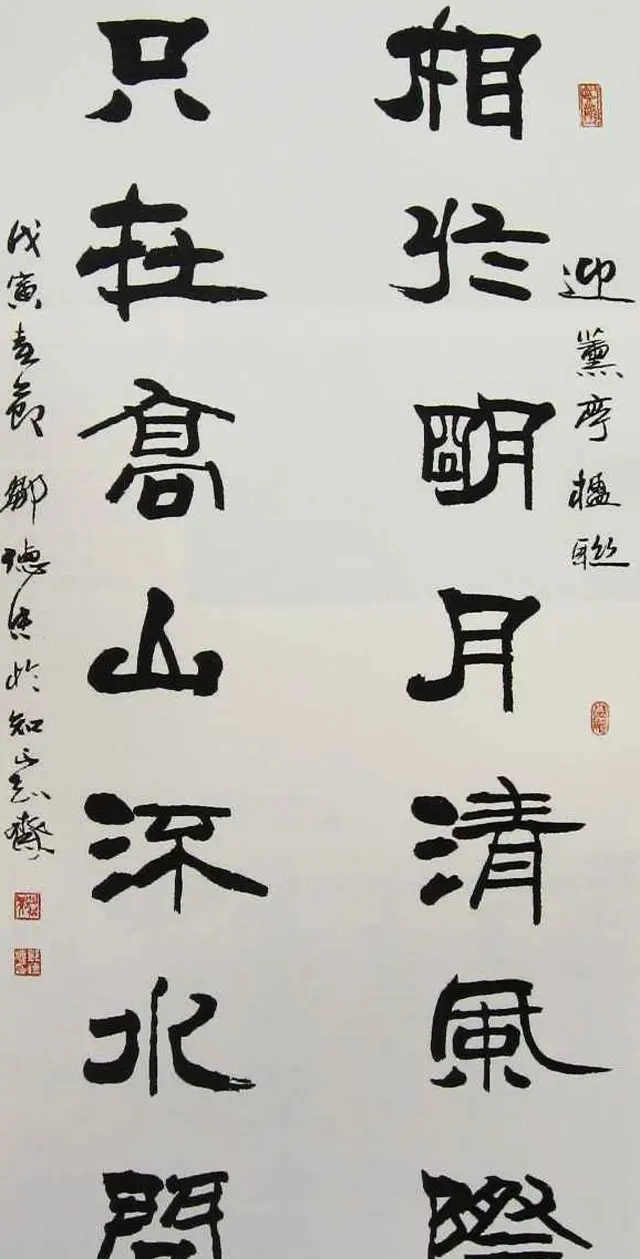 迎薰亭楹聯
相於明月清風際
只在高山流水間
戊寅春節鄒德忠於知齋